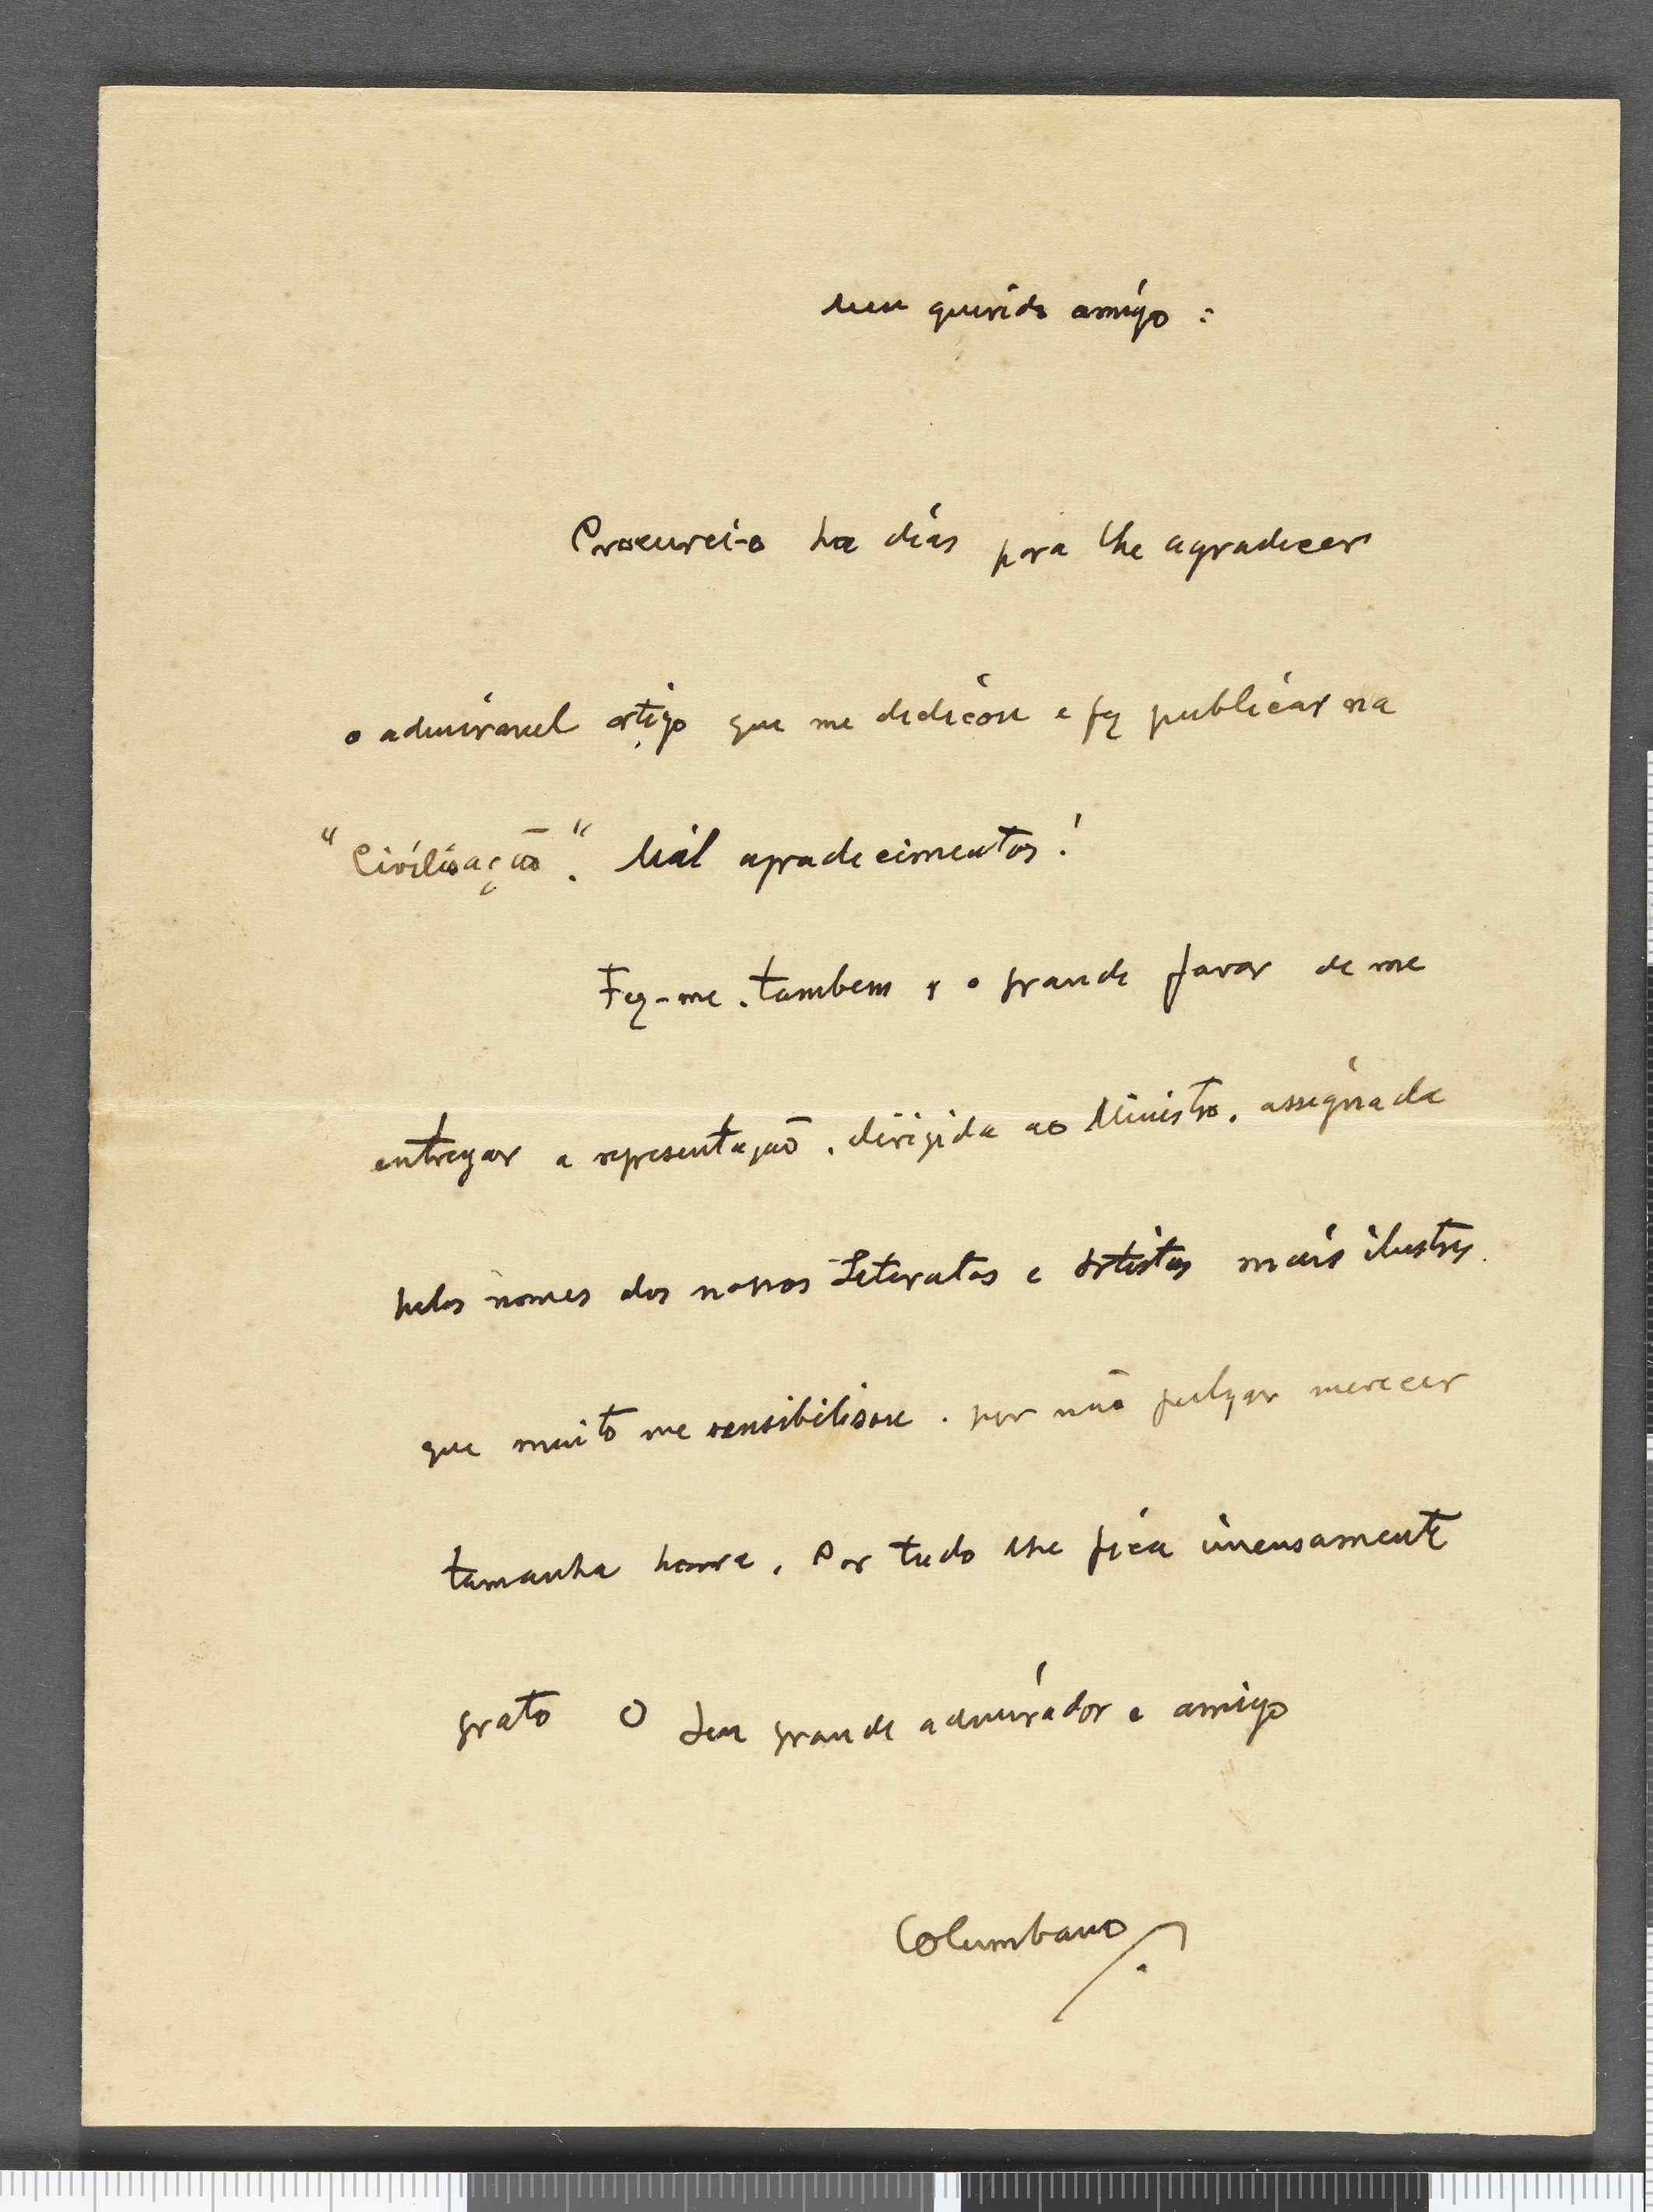 Meu querido amigo:
Procurei-o ha dias para lhe agradecer
o admiravel artigo que me dedicou e fez publicar na
"Civilisação". Mil agradecimentos!
Fez-me, tambem, o grande favor de me
entregar a representação, dirigida ao Ministro, assignada
pelos nomes dos nossos Literatos e Artistas mais ilustres,
que muito me sensibilisou, por não julgar merecer
tamanha honra. Por tudo lhe fica imensamente
grato O seu grande admirador e amigo
Columbano